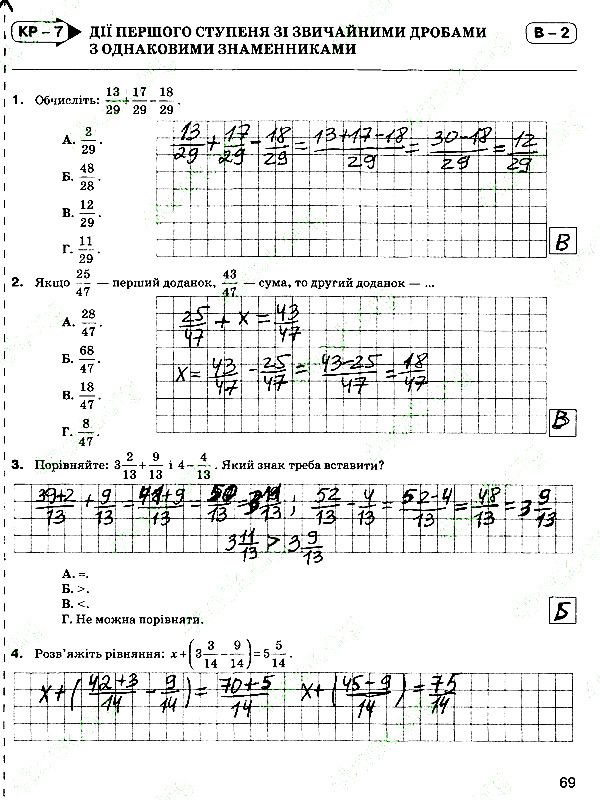 КР – 7 ДІЇ ПЕРШОГО СТУПЕНЯ ЗІ ЗВИЧАЙНИМИ ДРОБАМИ В – 2
З ОДНАКОВИМИ ЗНАМЕННИКАМИ
1. Обчисліть: 13/29 + 17/29 - 18/29.
13/29 + 17/29 - 18/29 = (13+17-18)/29 = (30-18)/29 = 12/29
А. 2/29.
Б. 48/28.
В. 12/29.
Г. 11/29.
В
2. Якщо 25/47 — перший доданок, 43/47 — сума, то другий доданок — ...
А. 28/47.
25/47 + x = 43/47
Б. 68/47.
x = 43/47 - 25/47 = (43-25)/47 = 18/47
В. 18/47.
Г. 8/47.
В
3. Порівняйте: 3 2/13 + 9/13 і 4 - 4/13. Який знак треба вставити?
(39+2)/13 + 9/13 = (41+9)/13 = 50/13 = 3 11/13; 52/13 - 4/13 = (52-4)/13 = 48/13 = 3 9/13
3 11/13 > 3 9/13
А. =.
Б. >.
В. <.
Г. Не можна порівняти.
Б
4. Розв'яжіть рівняння: x + (3 3/14 - 9/14) = 5 5/14.
x + ((42+3)/14 - 9/14) = (70+5)/14 x + ((45-9)/14) = 75/14
69